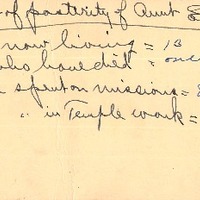 of postivity of Aunt
now living = 13
who have died = once
spent on missions =
" in Temple work =